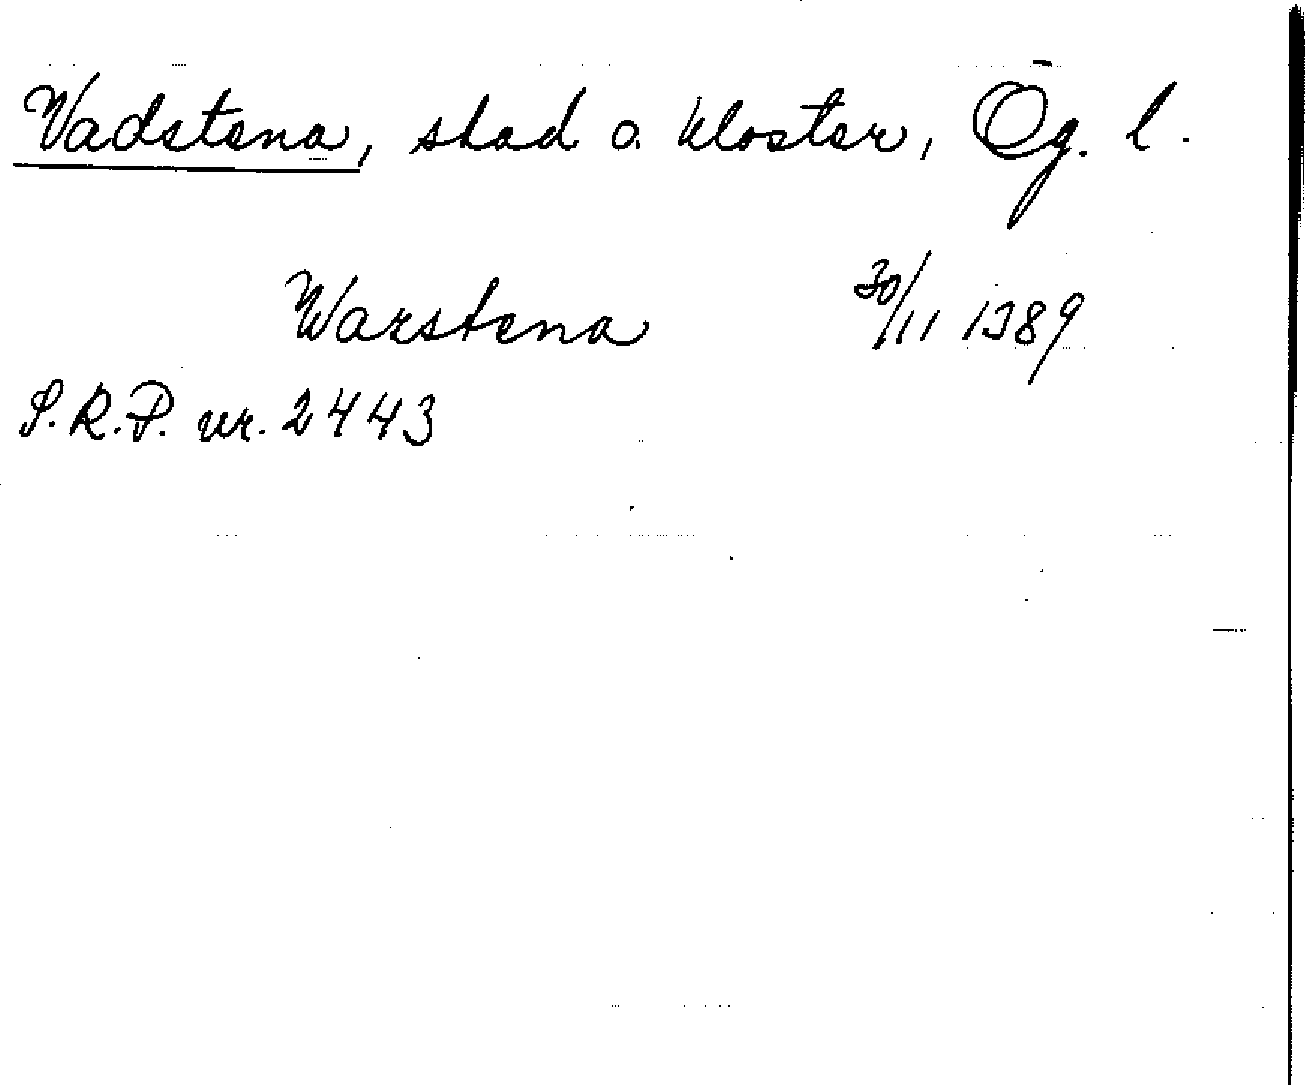 Vadstena, stad o. kloster, Ög. l.
Wazstena 30/11 1389
S.R.P. nr. 2443